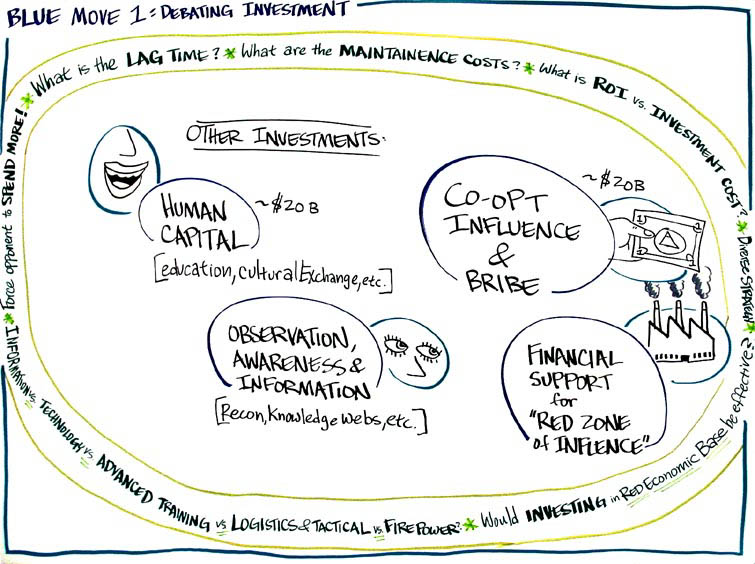 BLUE MOVE 1: DEBATING INVESTMENT
What is the LAG TIME? * What are the MAINTAINENCE COSTS? * What is ROI vs. INVESTMENT COST? *
Diverse STRATEGY *
Would INVESTING in RED Economic Base be effective?
* INFORMATION vs. TECHNOLOGY vs ADVANCED TRAINING vs LOGISTICS & TACTICAL vs. FIREPOWER? *
* Force opponent to SPEND MORE! *
OTHER INVESTMENTS:
HUMAN
CAPITAL
~$20B
[education, Cultural Exchange, etc.]
CO-OPT
INFLUENCE
&
BRIBE
~$20B
1
1
OBSERVATION,
AWARENESS &
INFORMATION
[Recon, Knowledge Webs, etc.]
FINANCIAL
SUPPORT
for
"RED ZONE
of INFLENCE"